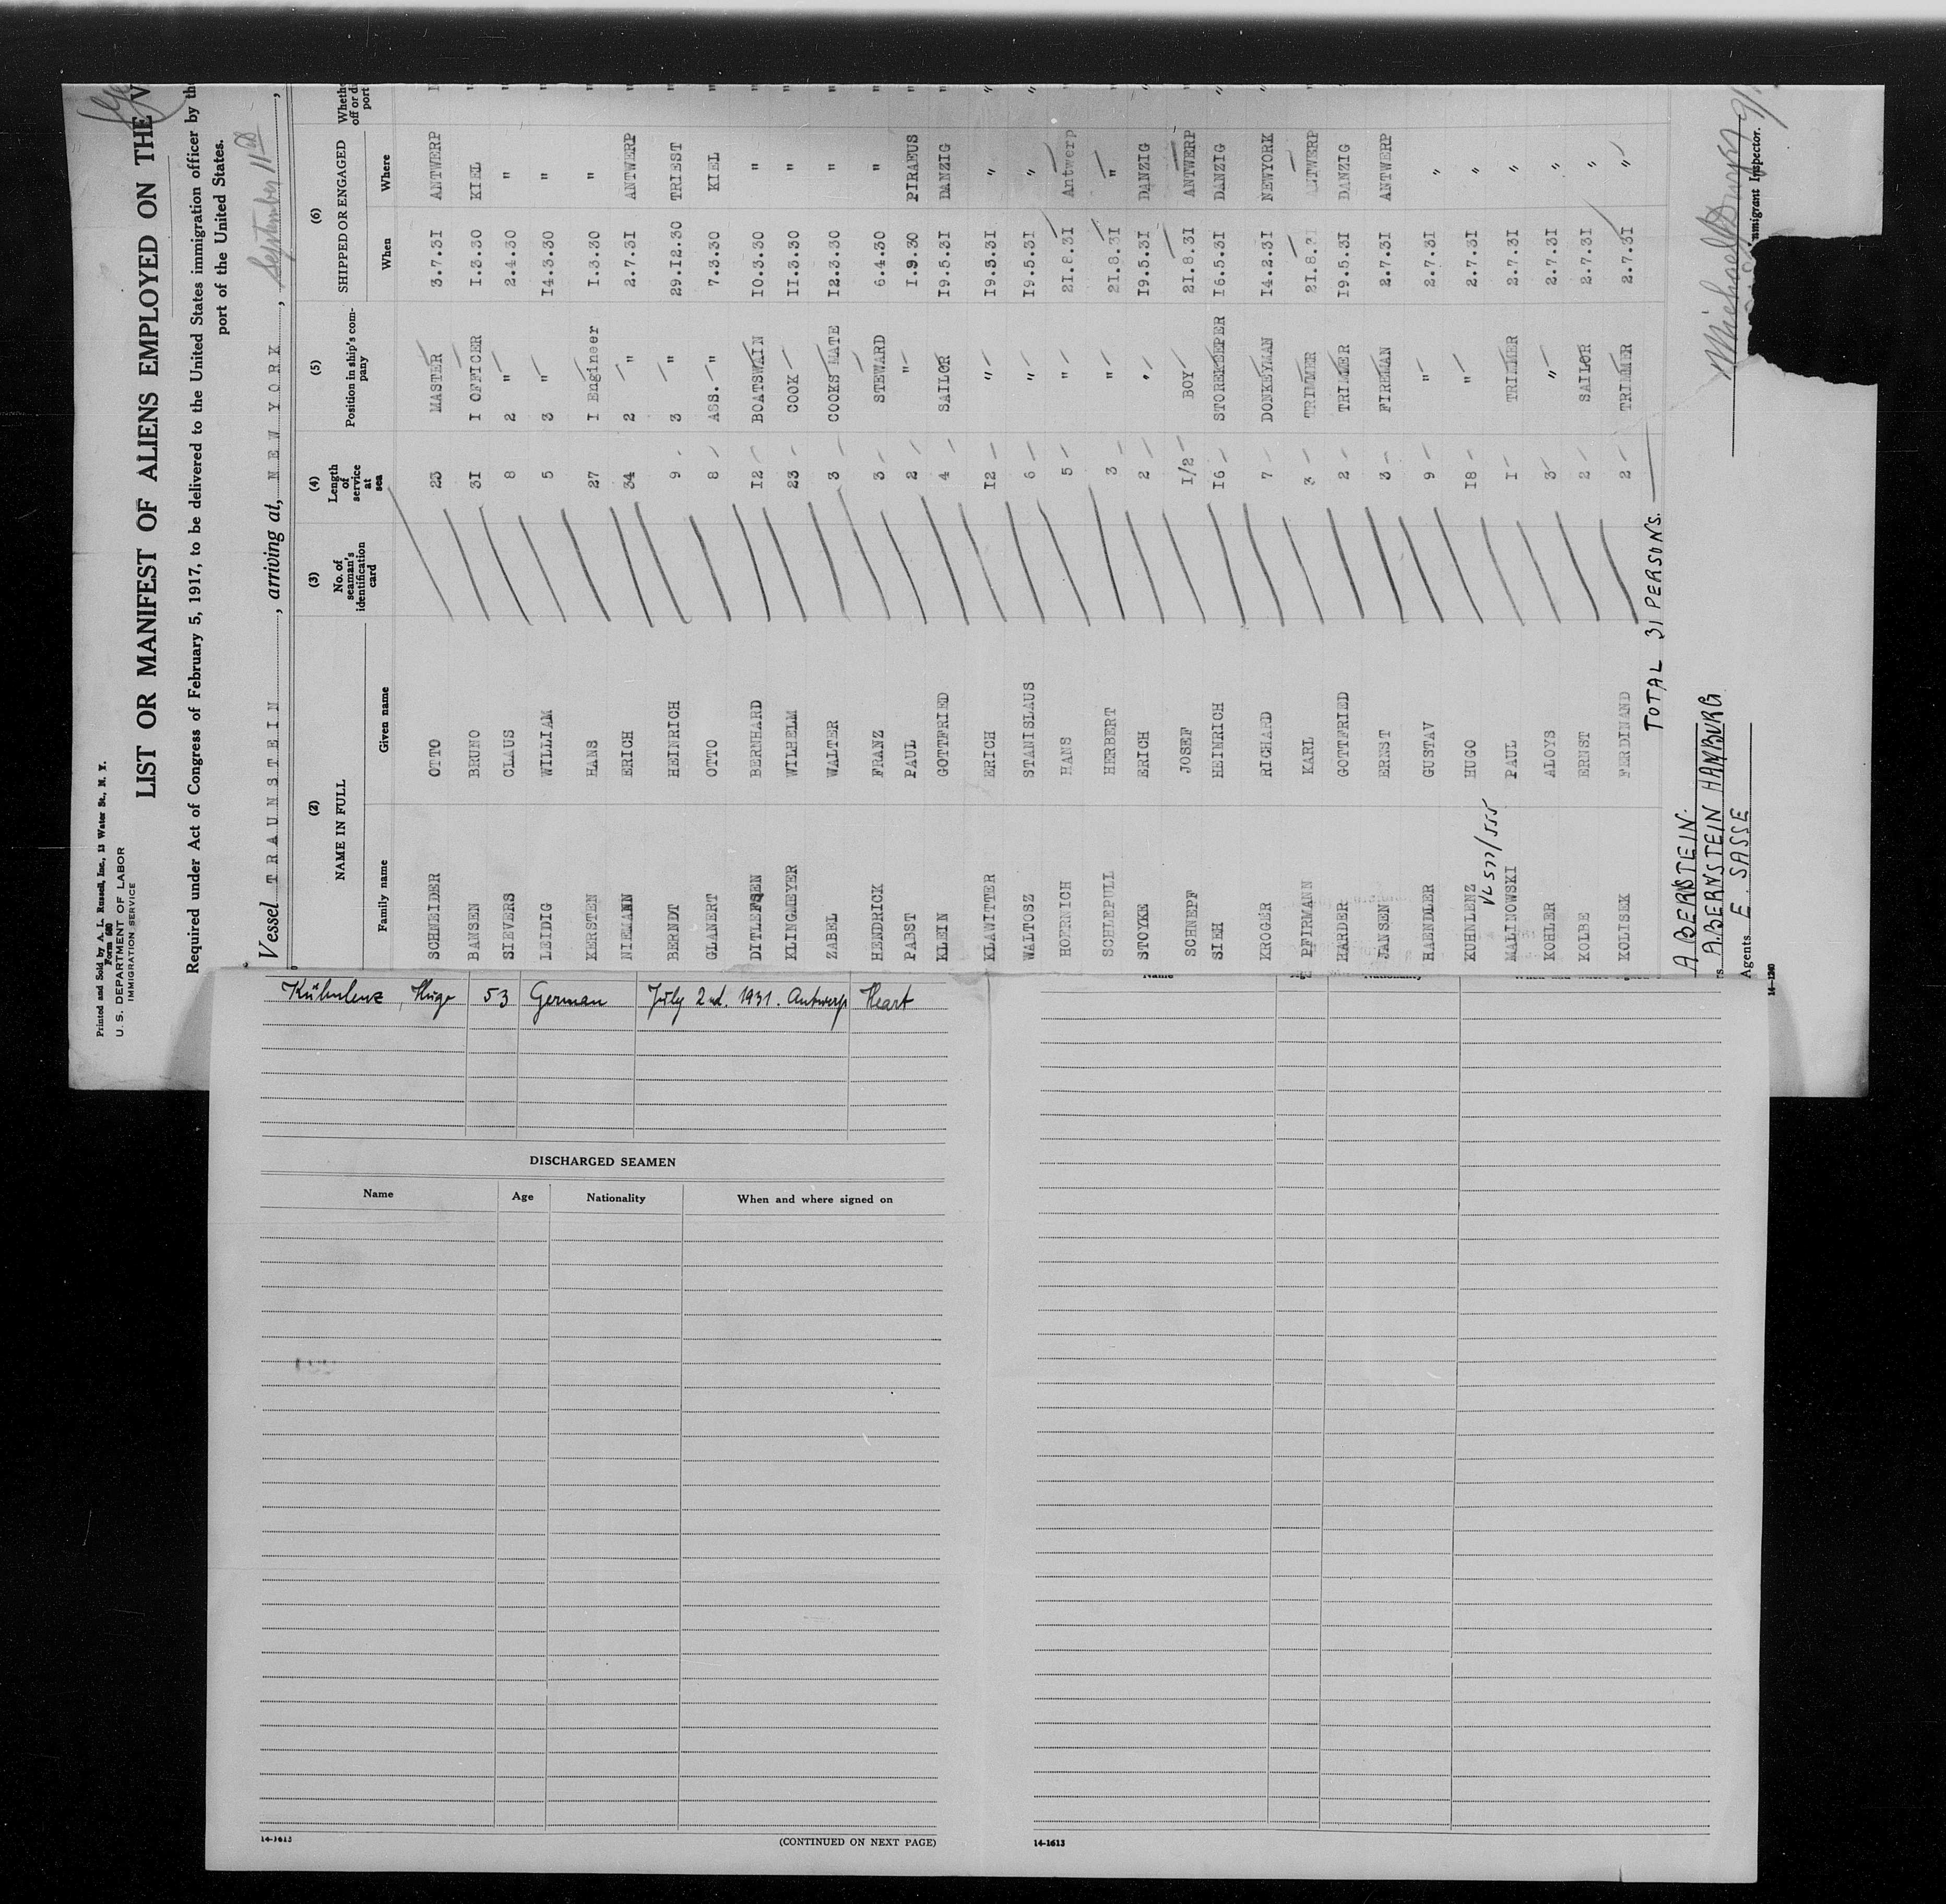 Printed and Sold by A. L. Russell, Inc., 13 Water St., N. Y.
Form 680
U. S. DEPARTMENT OF LABOR
IMMIGRATION SERVICE
LIST OR MANIFEST OF ALIENS EMPLOYED ON THE V
Required under Act of Congress of February 5, 1917, to be delivered to the United States immigration officer by the
port of the United States.
Vessel TRAUNSTEIN, arriving at, NEW YORK, September 11th,
(2) (3) (4) (5) (6)
NAME IN FULL No. of seaman's identification card Length of service at sea Position in ship's company SHIPPED OR ENGAGED Whethe off or di port
Family name Given name When Where
SCHNEIDER OTTO 23 MASTER 3.7.3I ANTWERP
BANSEN BRUNO 3I I OFFICER I.3.30 KIEL "
SIEVERS CLAUS 8 2 " 2.4.30 " "
LEIDIG WILLIAM 5 3 " I4.3.30 " "
KERSTEN HANS 27 I Engineer I.3.30 " "
NIEMANN ERICH 34 2 " 2.7.3I ANTWERP "
BERNDT HEINRICH 9 3 " 29.I2.30 TRIEST "
GLANERT OTTO 8 ASS. " 7.3.30 KIEL "
DITLEFSEN BERNHARD I2 BOATSWAIN I0.3.30 " "
KLINGMEYER WILHELM 23 COOK II.3.30 " "
ZABEL WALTER 3 COOKS MATE I2.3.30 " "
HENDRICK FRANZ 3 STEWARD 6.4.30 " "
PABST PAUL 2 " I.9.30 PIRAEUS "
KLEIN GOTTFRIED 4 SAILOR I9.5.3I DANZIG "
KLAWITTER ERICH I2 " I9.5.3I " "
WALTOSZ STANISLAUS 6 " I9.5.3I " "
HOFRNICH HANS 5 " 2I.8.3I Antwerp "
SCHLEPULL HERBERT 3 " 2I.8.3I " "
STOYKE ERICH 2 " I9.5.3I DANZIG "
SCHNEPF JOSEF I/2 BOY 2I.8.3I ANTWERP "
SIEH HEINRICH I6 STOREKEEPER I6.5.3I DANZIG "
KROGER RICHARD 7 DONKEYMAN I4.2.3I NEWYORK "
PFIRMANN KARL 3 TRIMMER 2I.8.3I ANTWERP "
HARDER GOTTFRIED 2 TRIMMER I9.5.3I DANZIG "
JANSEN ERNST 3 FIREMAN 2.7.3I ANTWERP "
HAENDLER GUSTAV 9 " 2.7.3I "
KUHNLENZ HUGO I8 " 2.7.3I "
VL 577/555
MALINOWSKI PAUL I TRIMMER 2.7.3I "
KOHLER ALOYS 3 " 2.7.3I "
KOLBE ERNST 2 SAILOR 2.7.3I "
KOLISEK FERDINAND 2 TRIMMER 2.7.3I "
TOTAL 31 PERSONS.
A. BERNSTEIN.
A. BERNSTEIN HAMBURG
Agents E. SASSE
Immigrant Inspector.
14-1240
Kühnlenz, Hugo 53 German July 2nd. 1931. Antwerp Heart
DISCHARGED SEAMEN
Name Age Nationality When and where signed on
14-1613
(CONTINUED ON NEXT PAGE)
14-1613